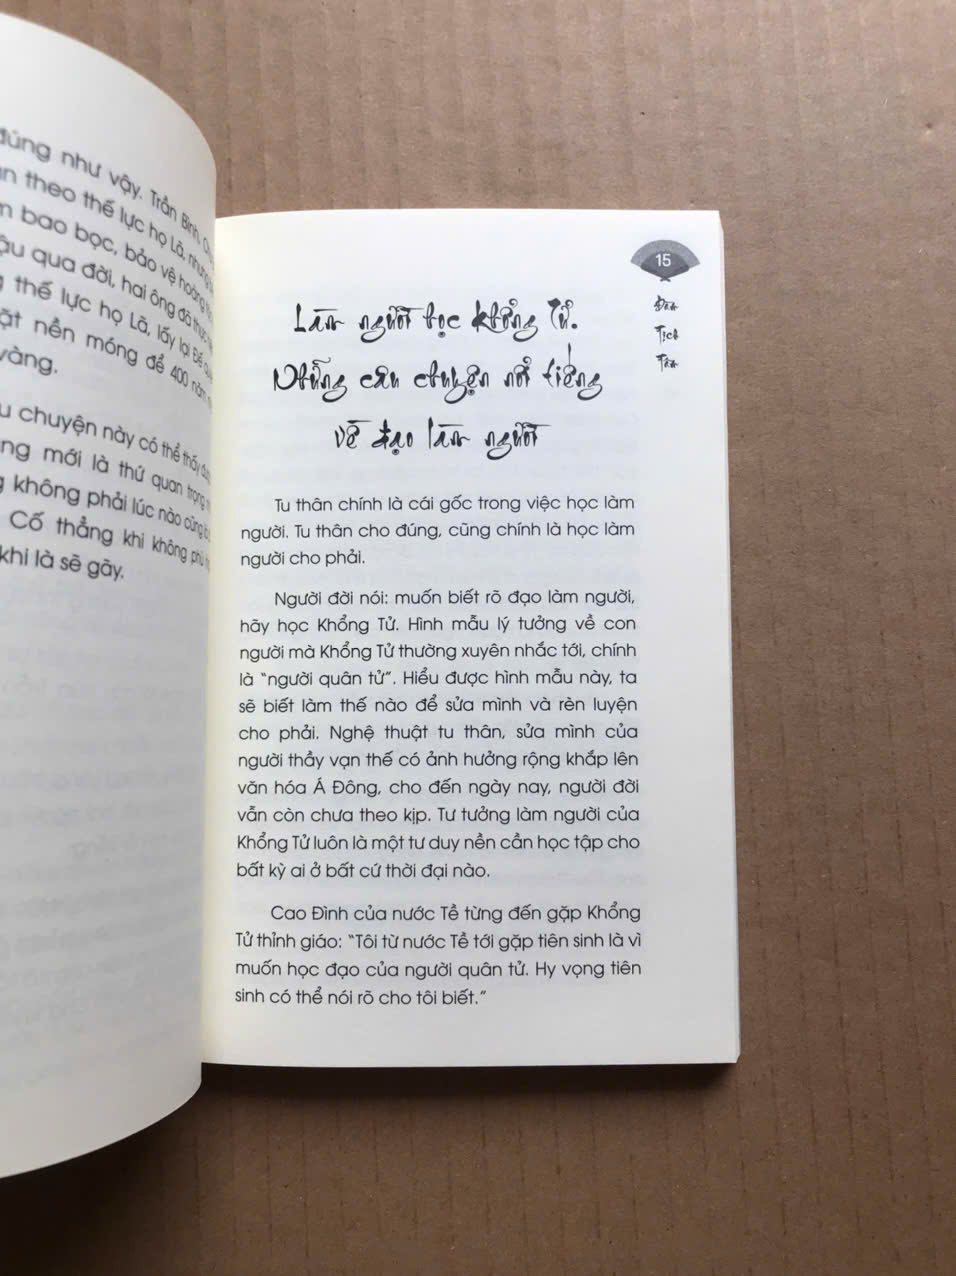 đúng như vậy. Trần Bình,
theo thế lực họ Lã, nhưng
bao bọc, bảo vệ hoàng
qua đời, hai ông đã thực
thế lực họ Lã, lấy lại Đế
nền móng để 400 năm
vàng.
chuyện này có thể thấy
mới là thứ quan trọng
không phải lúc nào cũng
Cố thẳng khi không phù
khi là sẽ gãy.
15
Đàn
Tịch
Tân
Làm người học Khổng Tử.
Những câu chuyện nổi tiếng
về đạo làm người
Tu thân chính là cái gốc trong việc học làm
người. Tu thân cho đúng, cũng chính là học làm
người cho phải.
Người đời nói: muốn biết rõ đạo làm người,
hãy học Khổng Tử. Hình mẫu lý tưởng về con
người mà Khổng Tử thường xuyên nhắc tới, chính
là “người quân tử”. Hiểu được hình mẫu này, ta
sẽ biết làm thế nào để sửa mình và rèn luyện
cho phải. Nghệ thuật tu thân, sửa mình của
người thầy vạn thế có ảnh hưởng rộng khắp lên
văn hóa Á Đông, cho đến ngày nay, người đời
vẫn còn chưa theo kịp. Tư tưởng làm người của
Khổng Tử luôn là một tư duy nền cần học tập cho
bất kỳ ai ở bất cứ thời đại nào.
Cao Đình của nước Tề từng đến gặp Khổng
Tử thỉnh giáo: “Tôi từ nước Tề tới gặp tiên sinh là vì
muốn học đạo của người quân tử. Hy vọng tiên
sinh có thể nói rõ cho tôi biết.”